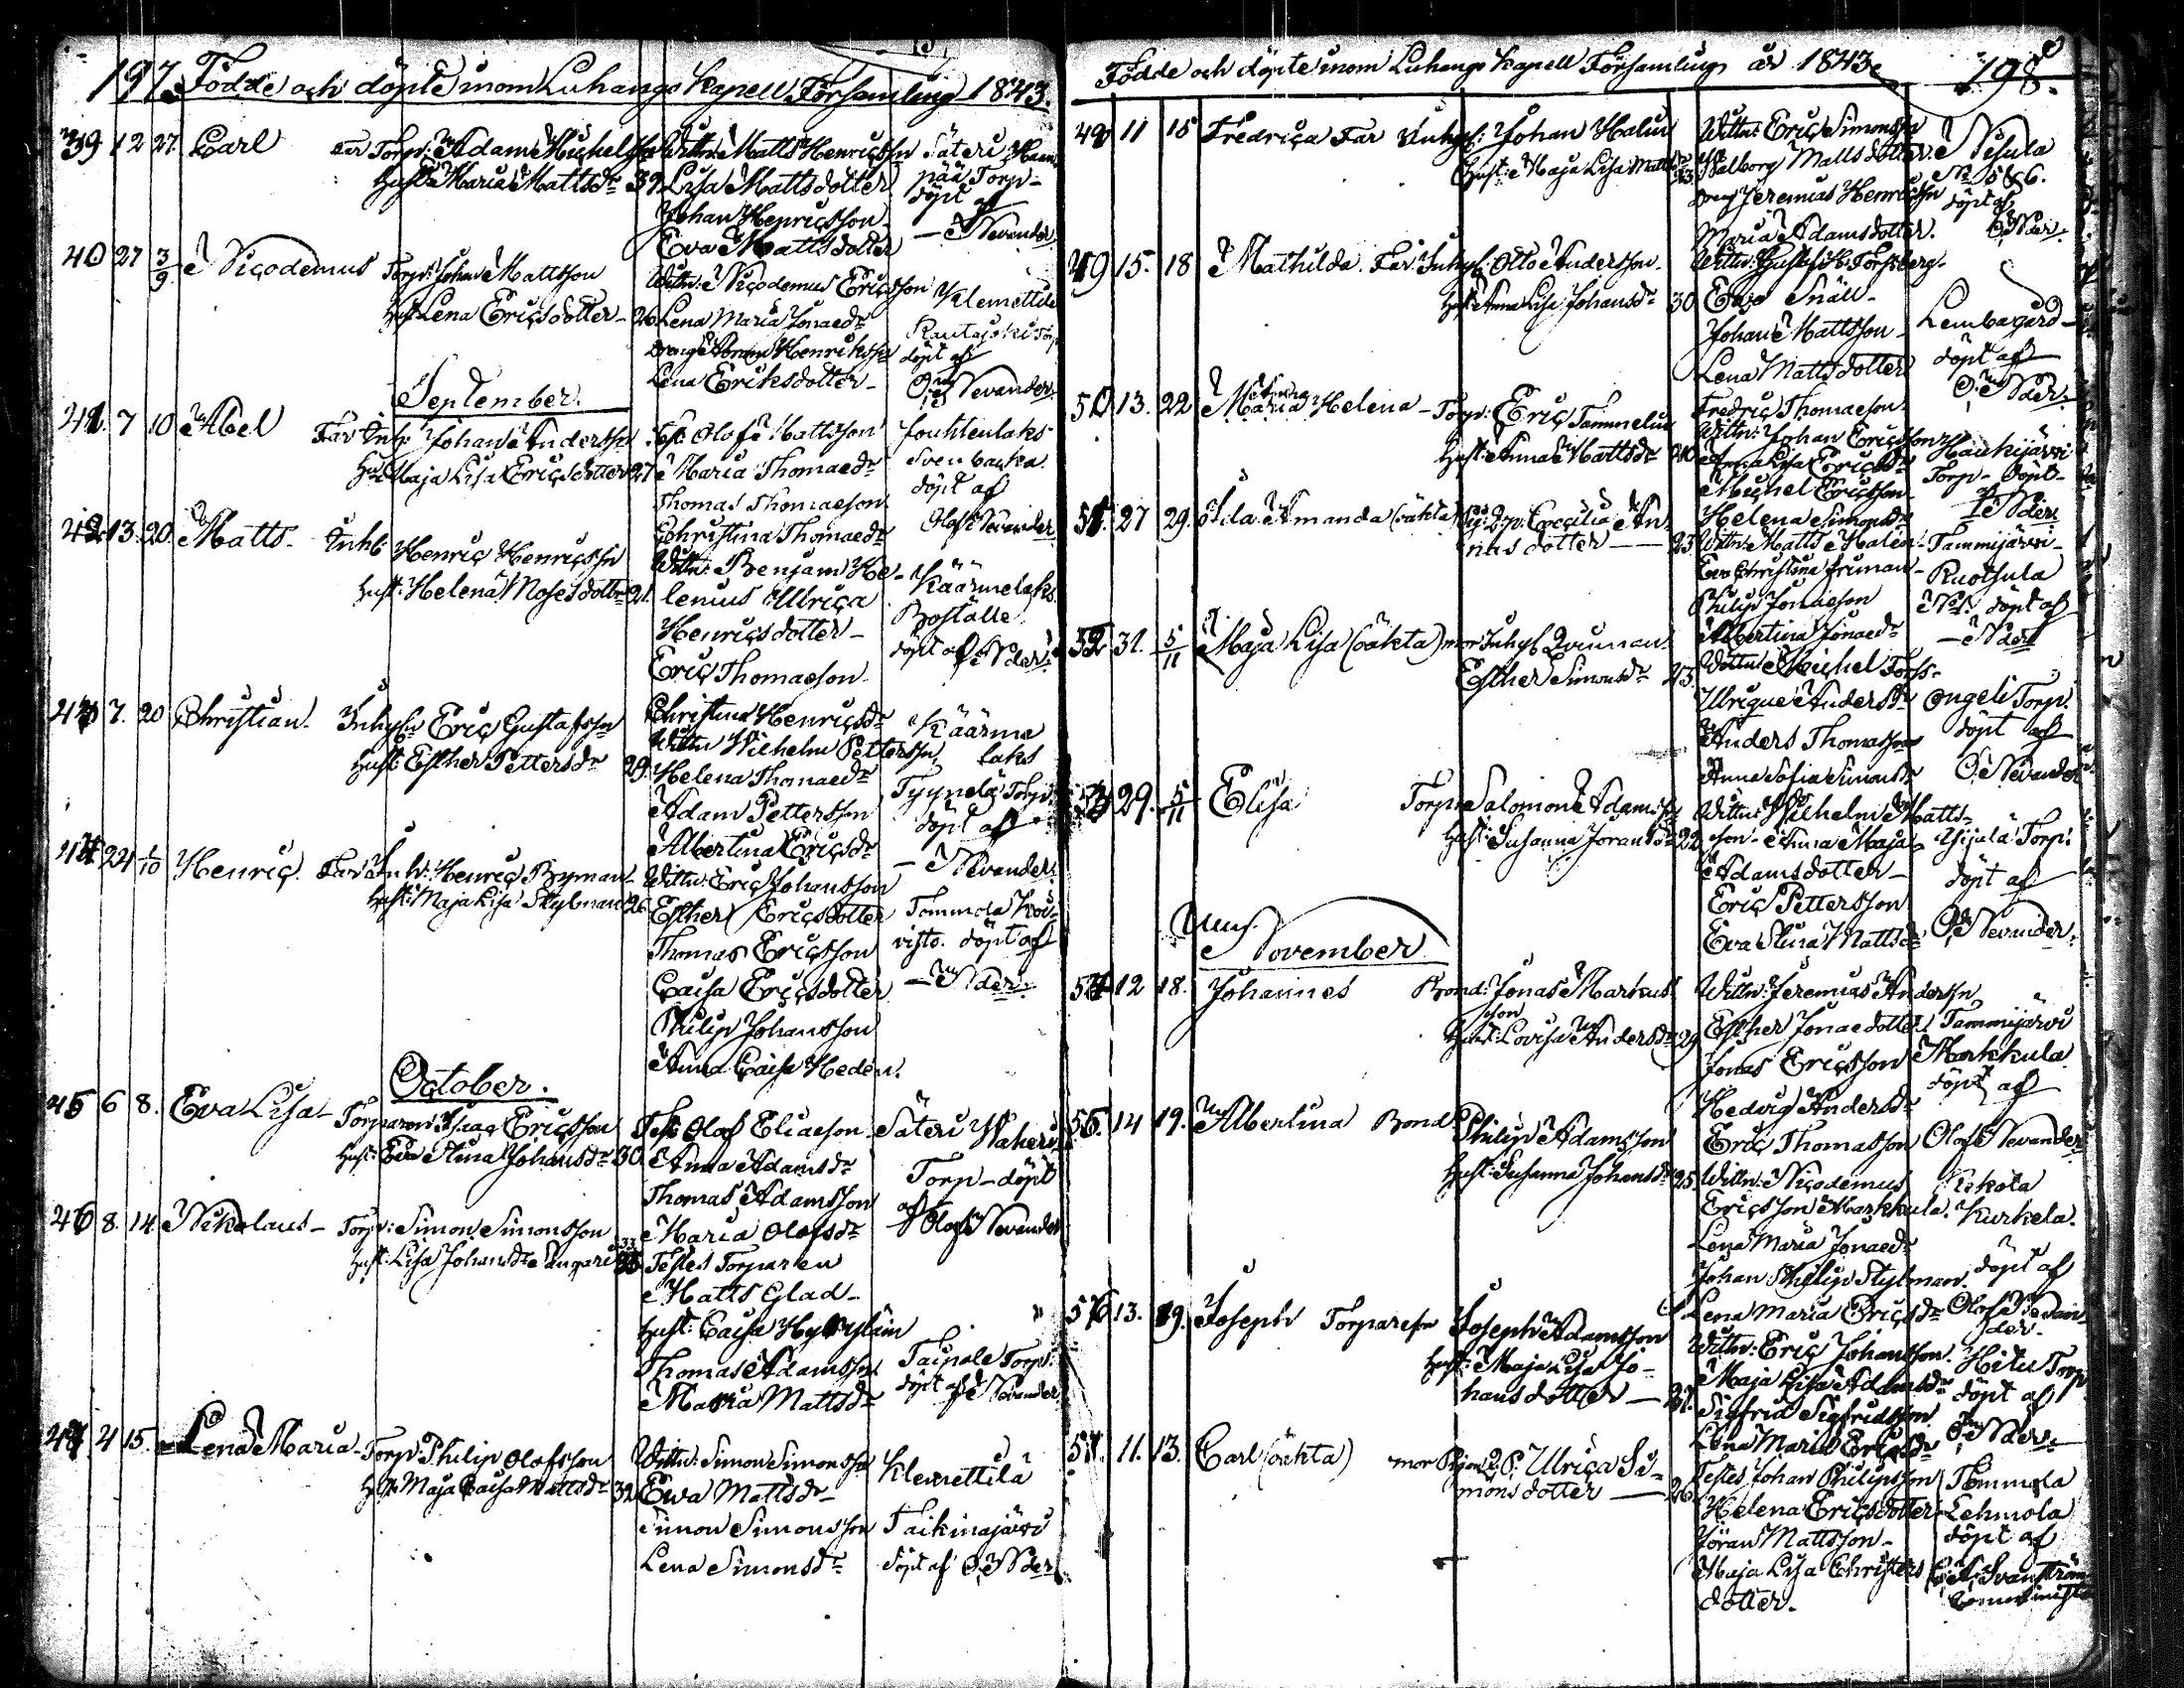 197. Födde och döpte inom Luhango Kapell Församling 1843.
39 12 27. Carl Far Torp: Adam Michelsson Wittn: Matts Henricsson Säteri
Hust: Maria Mattsdr 39. Lisa Mattsdotter pää Torp-
Johan Henricsson döpt af
Eva Mattsdotter — Nevander.
40 27 3/9 Nicodemus Torp: Johan Mattsson Wittn: Nicodemus Ericsson Klemettilä
Hust: Lena Ericsdotter - 26 Lena Maria Jonaedr Rautajoki Torp
Dreng Henriksson döpt af
Lena Eriksdotter - O. Nevander.
September.
41. 7 10 Abel Far Inh: Johan Andersson Test: Olof Mattsson Jouhtenlaks
Hu: Maja Lisa Ericsdotter 27 Maria Thomaedr Svenbacka
Thomas Thomaeson döpt af
Christina Thomaedr Olof Nevander
42 13. 20. Matts - Inh: Henric Henricsson Wittn: Benjam He- Käärmelaks
Hust: Helena Mosesdotter 21. lenius Ulrica Boställe
Henricsdotter - döpt af Nder.
Eric Thomaeson
43 7. 20 Christian. Inhys Eric Gustafsson Christina Henricsdr Käärme
Hust: Esther Pettersdr 29. Wittn Wilhelm Pettersson, laks
Helena Thomaedr Tyynelä Torp.
Adam Pettersson döpt af
Albertina Ericsdr — Nevander.
44 24 1/10 Henric. Far Inh: Henric Byman Wittn: Eric Johansson
Hust: Maja Lisa Stylman 26 Esther Ericsdotter Tommola Koi-
Thomas Ericsson visto. döpt af
Caisa Ericsdotter — Nder.
Philip Johansson
Anna Caisa Heden.
October.
45 6 8. Eva Lisa - Torparen Isaac Ericsson Test: Olof Eliaeson Säteri Waheri
Hust: Eva Stina Johansdr 30 Anna Adamsdr Torp - döpt
Thomas Adamsson af
46 8. 14. Nikolaus - Torp: Simon Simonsson Maria Olofsdr Olof Nevander
Hust: Lisa Johansdr 33 Testes Torparen
Matts Glad -
Hust: Caisa
Thomas Adamsson Taipale Torp:
Maria Mattsdr döpt af Nevander
47 4 15. Lena Maria - Torp: Philip Olofsson Wittn: Simon Simonsson Klemettilä
Hust: Maja Caisa Mattsdr 32 Ewa Mattsdr - Taikinajärvi
Simon Simonsson döpt af O. Nder
Lena Simonsdr
Födde och döpte inom Luhango Kapell Församling år 1843. 198.
48 11 15 Fredrica Far Inhys: Johan Wittn: Eric Simonsson
Hust: Maja Lisa Walborg Mattsdotter. Nisula
Dreng Jeremias Henricsson No 5 & 6.
Maria Adamsdotter. döpt af
O. Nder.
49 15. 18 Mathilda. Far: Inhys: Otto Andersson. Wittn: Gustaf Forssberg.
Hust: Anna Lisa Johansdr 30 Ewa Snäll -
Johan Mattsson Lembagård -
Lena Mattsdotter döpt af
O. Nder.
50 13. 22 Maria Helena - Torp: Eric Tammelin Fredric Thomaeson.
Hust: Anna Mattsdr 40 Wittn: Johan Ericsson Haukijärvi
Anna Lisa Ericsdr Torp - döpt -
Michel Ericsson Nder
Helena Simonsdr
51. 27 29. Ida Amanda (oäkta) Pig: Qvp. Caecilia An- Wittn: Matts Halén - Tammijärvi -
nasdotter — 23 Eva Christina Friman - Ruotsula
Philip Jonaeson No 1. döpt af
Albertina Jonaedr — Nder
52 31. 5/11 Maja Lisa (oäkta) mor Inhys Qvinnan Wittn: Michel Torss-
Esther Simonsdr 25. Ulrique Andersdr Ongeli Torp.
Anders Thomasson döpt af
Anna Sofia Simonsdr O. Nevander
53 29. 5/11 Elisa Torp: Salomon Adamsson Wittn: Wilhelm Matts-
Hust: Susanna Joransdr 22 son - Anna Maja Yijälä Torp:
Adamsdotter - döpt af
Eric Pettersson O. Nevander.
Eva Stina Mattsdr
November
54 12 18. Johannes Bond: Jonas Markus- Wittn: Jeremias Andersson
son Esther Jonaedotter Tammijärvi
Hust: Lovisa Andersdr 29 Jonas Ericsson Markkula
Hedvig Andersdr döpt af
55. 14 19. Albertina Bond Philip Adamsson Eric Thomasson Olof Nevander
Hust: Susanna Johansdr 25 Wittn: Nicodemus Kekola
Ericsson Markkula. Kurkela.
Lena Maria Jonaedr
Johan Philip Stylman. döpt af
56 13. 19. Joseph Torparen Joseph Adamsson Lena Maria Ericsdr Olof Nevan-
der.
Hust: Maja Lisa Jo- Wittn: Eric Johansson. Hitu Torp
hansdotter — 31. Maja Lisa Adamsdr döpt af
Sigfrid Sigfridsson O. Nder.
Lena Maria Ericsdr
57. 11. 13. Carl (oäkta) mor Pigan Q. P. Ulrica Si- Testes Johan Philipsson Tommola
monsdotter — 26. Helena Ericsdotter Lehmola
Jöran Mattsson - döpt af
Maja Lisa Christers Svanström
dotter.